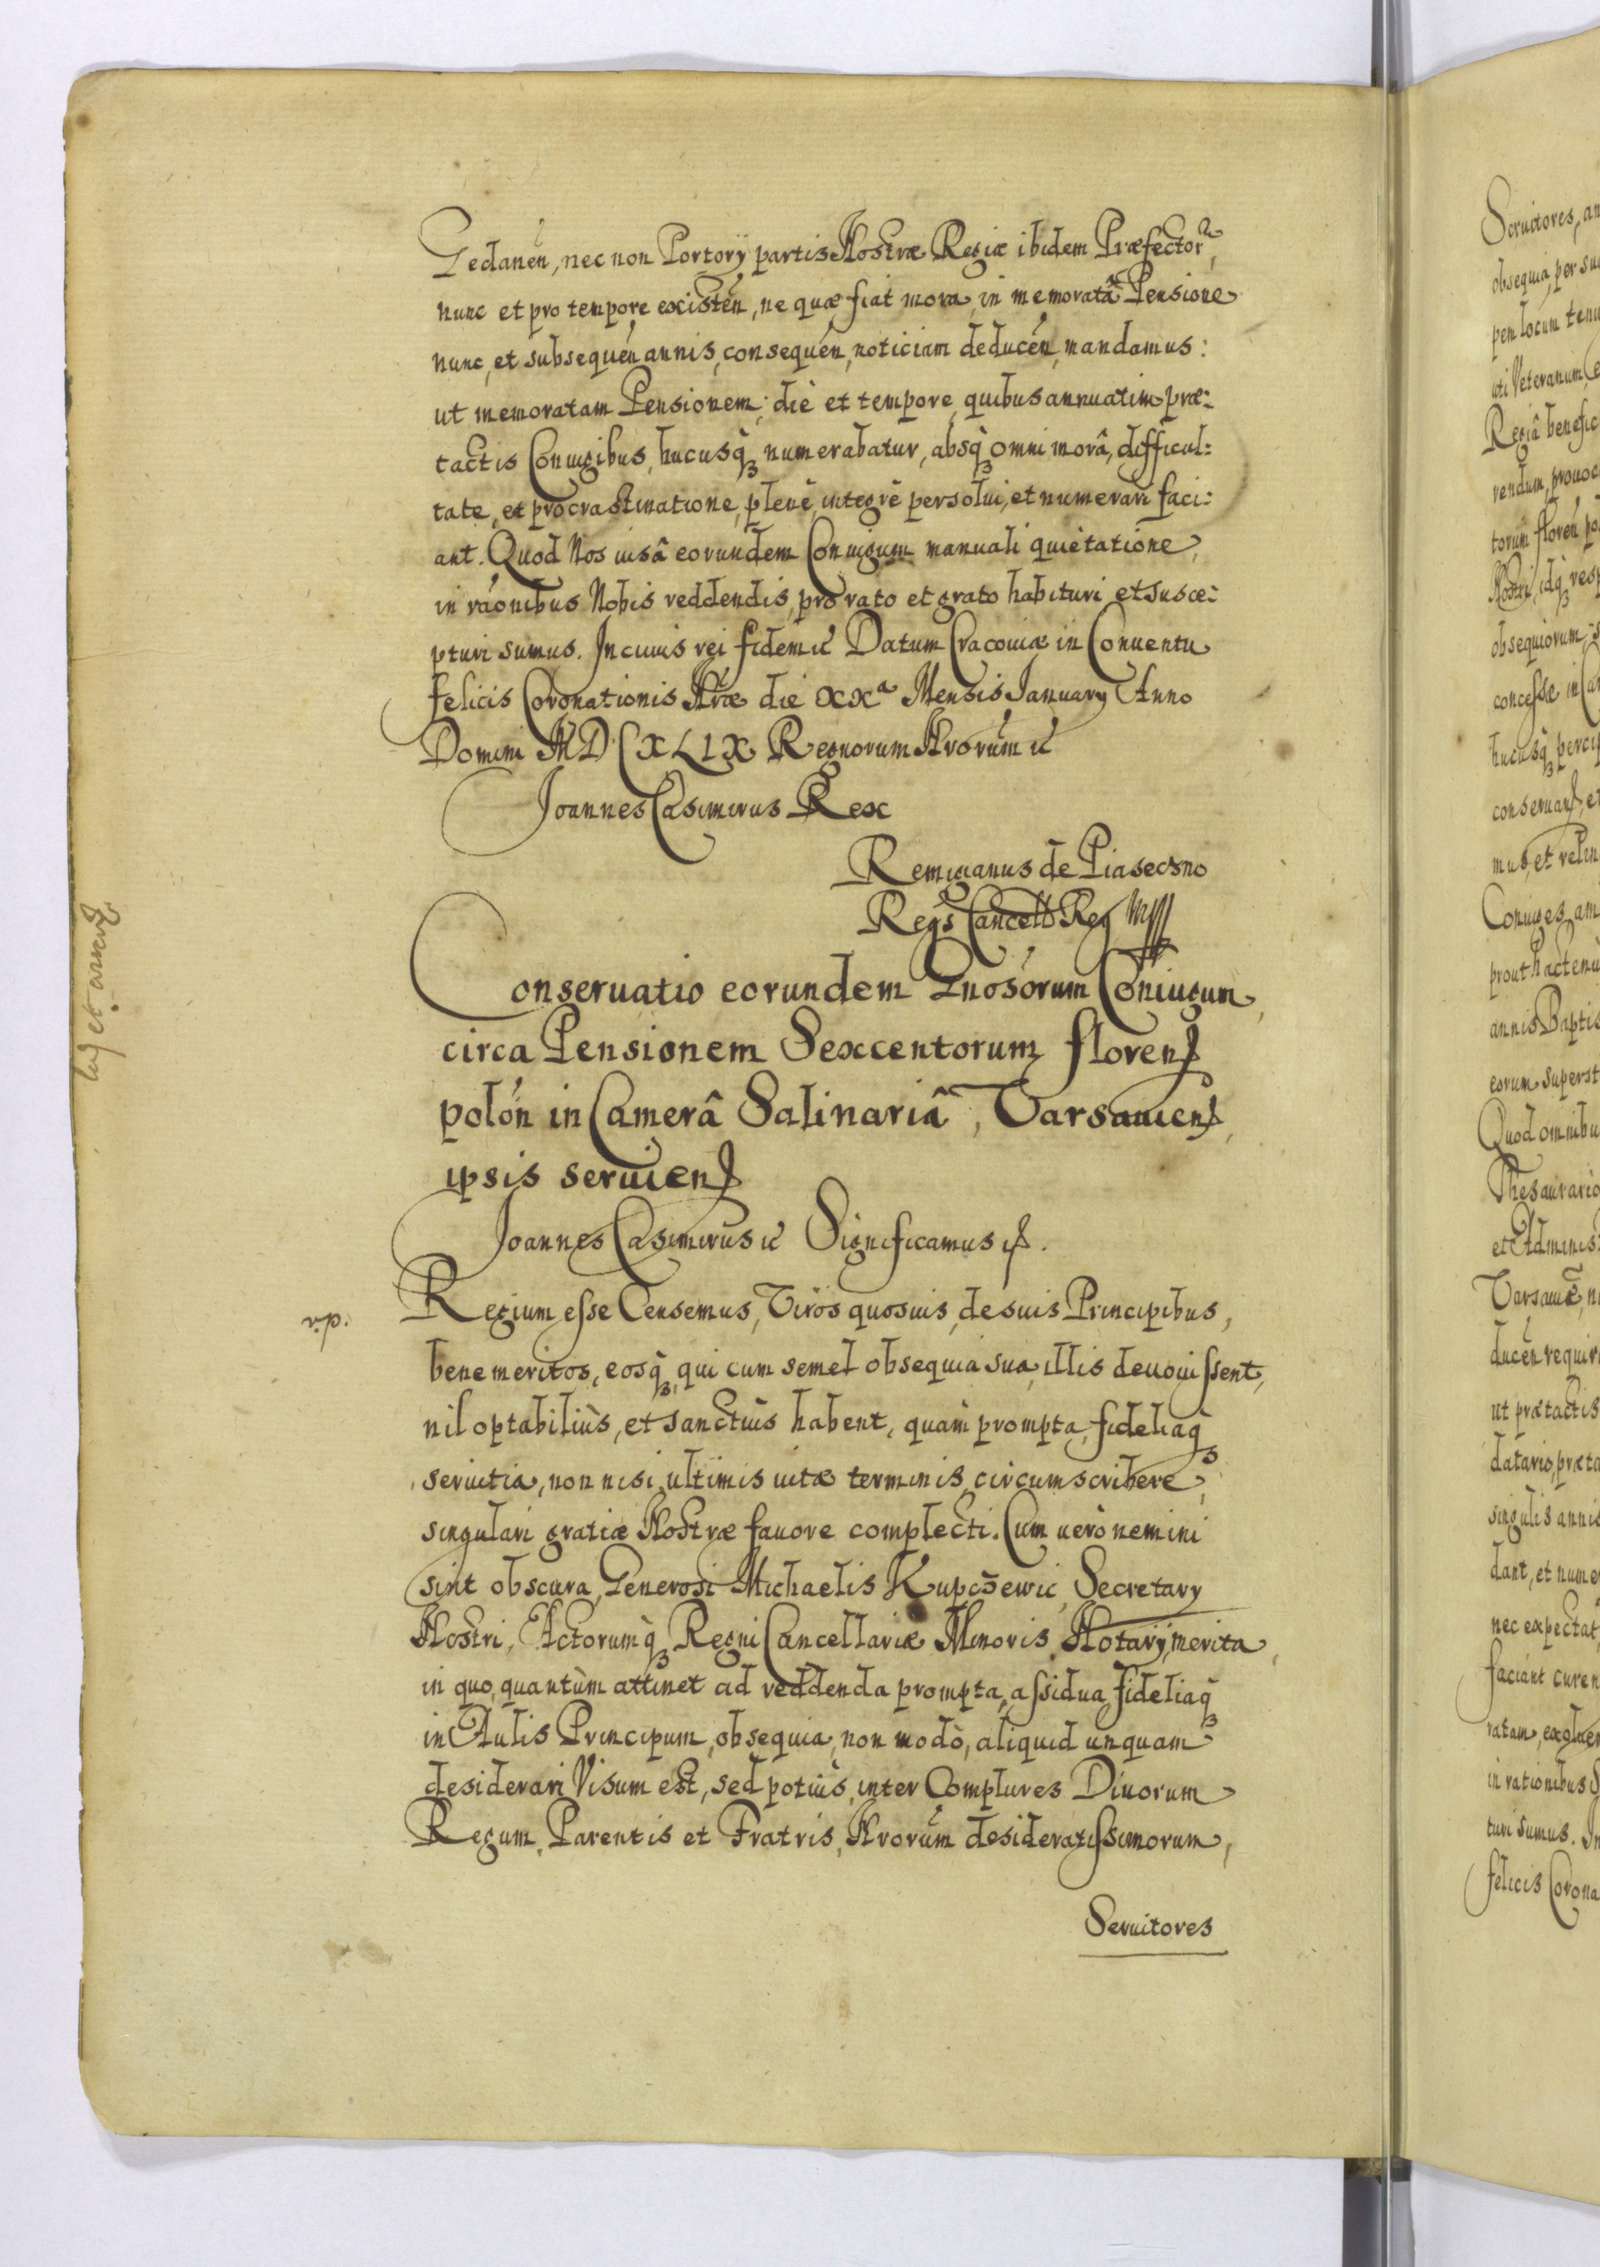 Gedanen̄, nec non Portorÿ partis Nostræ Regiæ ibidem Præfector,
nunc et pro tempore existen̄, ne quæ fiat mora, in memoratâ Pensione
nunc, et subsequen̄ annis, consequen̄, noticiam deducen̄, mandamus:
ut memoratam Pensionem, diè et tempore, quibus annuatim præ:
tactis Coniugibus, hucusq̀ꝫ numerabatur, absq̀ꝫ omni morâ, difficul:
tate, et procrastinatione, plenè, integrè persolui, et numerari faci:
ant. Quod Nos uisâ eorundem Coniugum manuali quietatione,
in rāonibus Nobis reddendis, pro rato et grato habituri et susce:
pturi sumus. In cuius rei fidem ꝛc̄ Datum Cracouiæ in Conuentu
felicis Coronationis Nr̄æ die XXª Mensis Januarÿ Anno
Domini MDCXLIX Regnorum Nrorum̄ ꝛc̄
Joannes Casimirus Rex
Remigianus de Piaseczno
Regs Cancell Reg Mpp
Conseruatio eorundem Gnosorum Coniugum,
circa Pensionem Sexcentorum floren̄
polon̄ in Camerâ Salinariâ, Varsauien̄,
ipsis seruien̄
Joannes Casimirus ꝛc̄ Significamus ꝛc̄.
Regium esse Censemus, Viros quosuis, de suis Principibus,
bene meritos, eosq̀ꝫ, qui cum semel obsequia sua, illis deuouissent,
nil optabiliùs, et sanctiùs habent, quàm prompta, fideliaq̀ꝫ
seruitia, non nisi, ultimis uitæ terminis, circumscribere,
singulari gratiæ Nostræ fauore complecti. Cum uerò nemini
sint obscura, Generosi Michaelis Kupczewic, Secretarÿ
Nostri, Actorumq̀ꝫ Regni Cancellariæ Minoris, Notarÿ, merita,
in quo, quantùm attinet ad reddenda prompta, assidua, fideliaq̀ꝫ
in Aulis Principum, obsequia, non modò, aliquid unquam
desiderari Visum est, sed potiùs, inter Complures Diuorum
Regum, Parentis et Fratris, Nrorum̄ desideratissimorum,
Seruitores
Seruitores, an
obsequia, per su
pem locum tenu
uti Veteranum, e
Regiâ benefic
rendum, prouoc
torum floren̄ po
Nostri, idq̀ꝫ resp
obsequiorum
concesse in Ca
hucusq̀ꝫ percip
conseruan̄, et
mus, et relin
Coniuges, am
prout hactenu
annis Baptis
eorum superst
Quod omnibu
Thesaurario
et Adminis
Varsauie, n
ducen̄ requiri
ut prætactis
datario, præta
singulis annis
dant, et nume
nec expectat
faciant curen
ratam, ex
in rationibus
turi sumus. In
felicis Corona